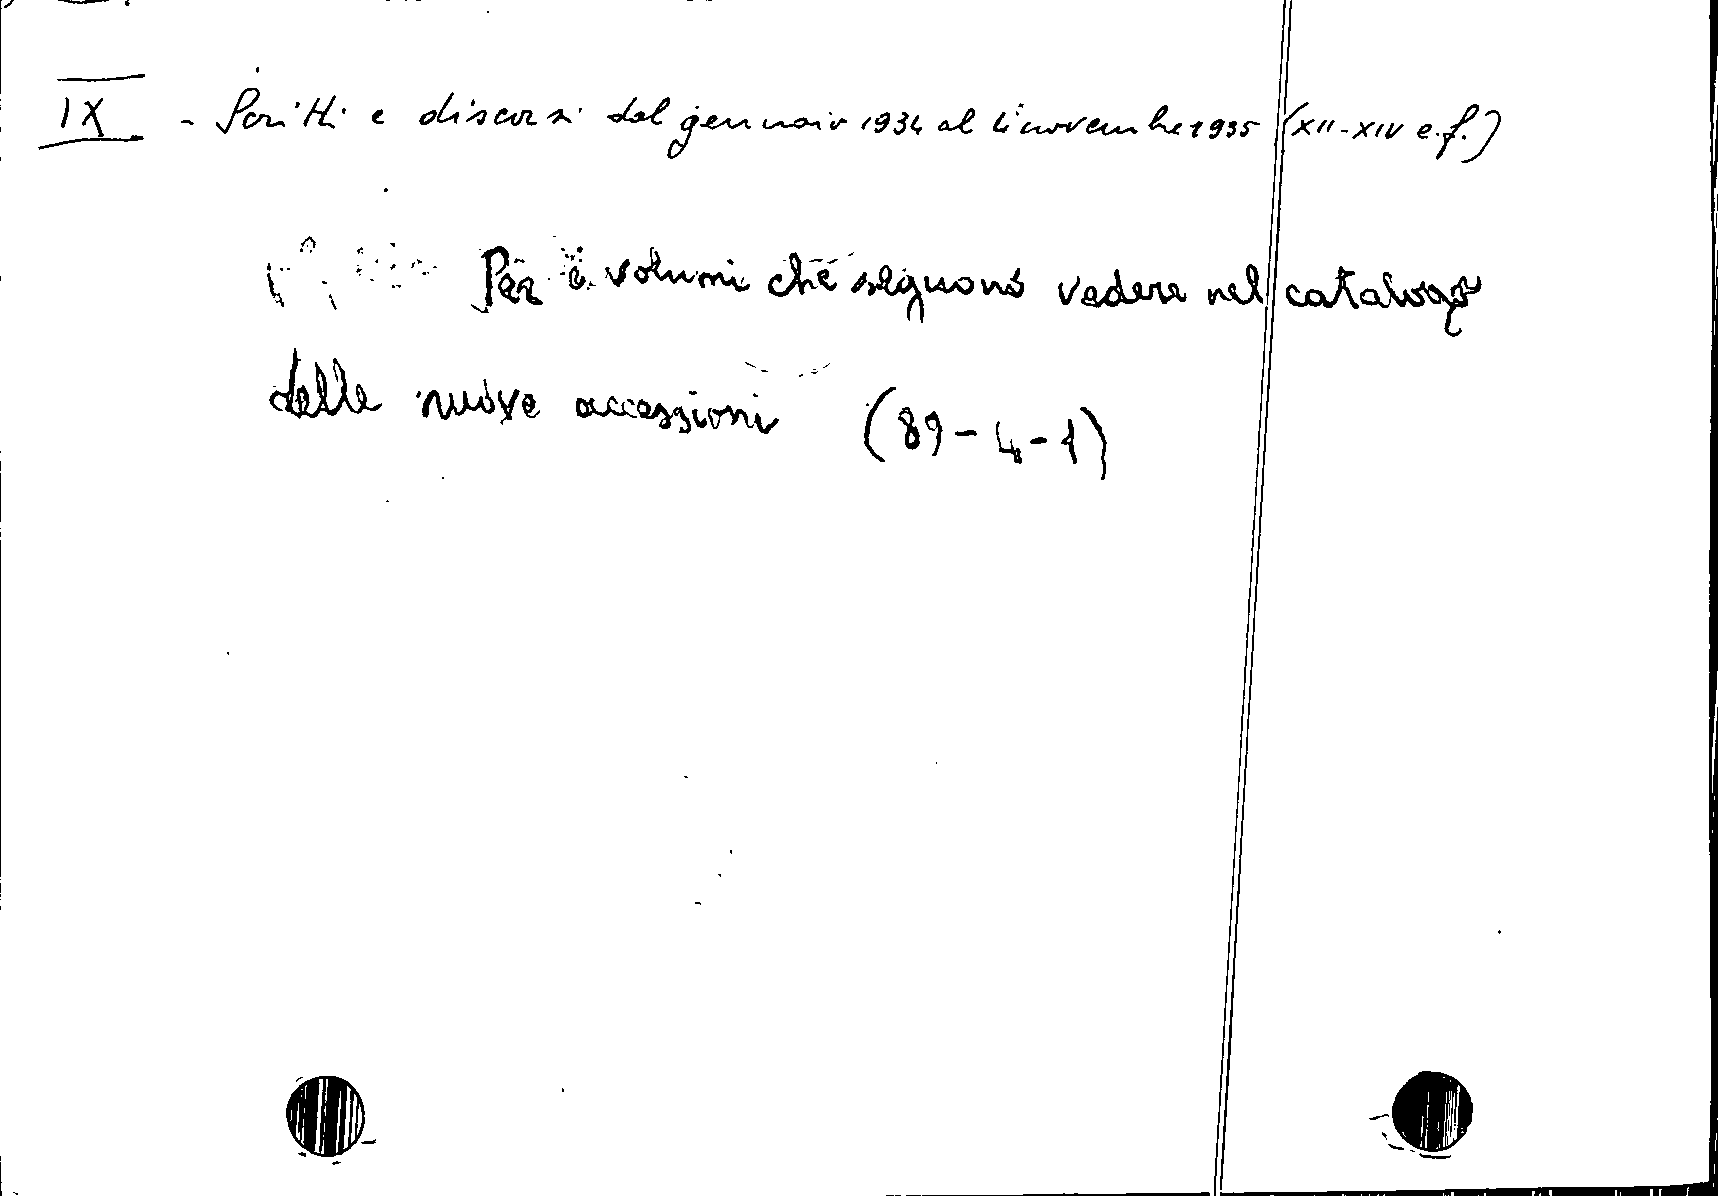 IX - Scritti e discorsi dal gennaio 1934 al 4 novembre 1935 (XII-XIV e.f.)
Per i volumi che seguono vedere nel catalogo
delle nuove accessioni (89-4-1)